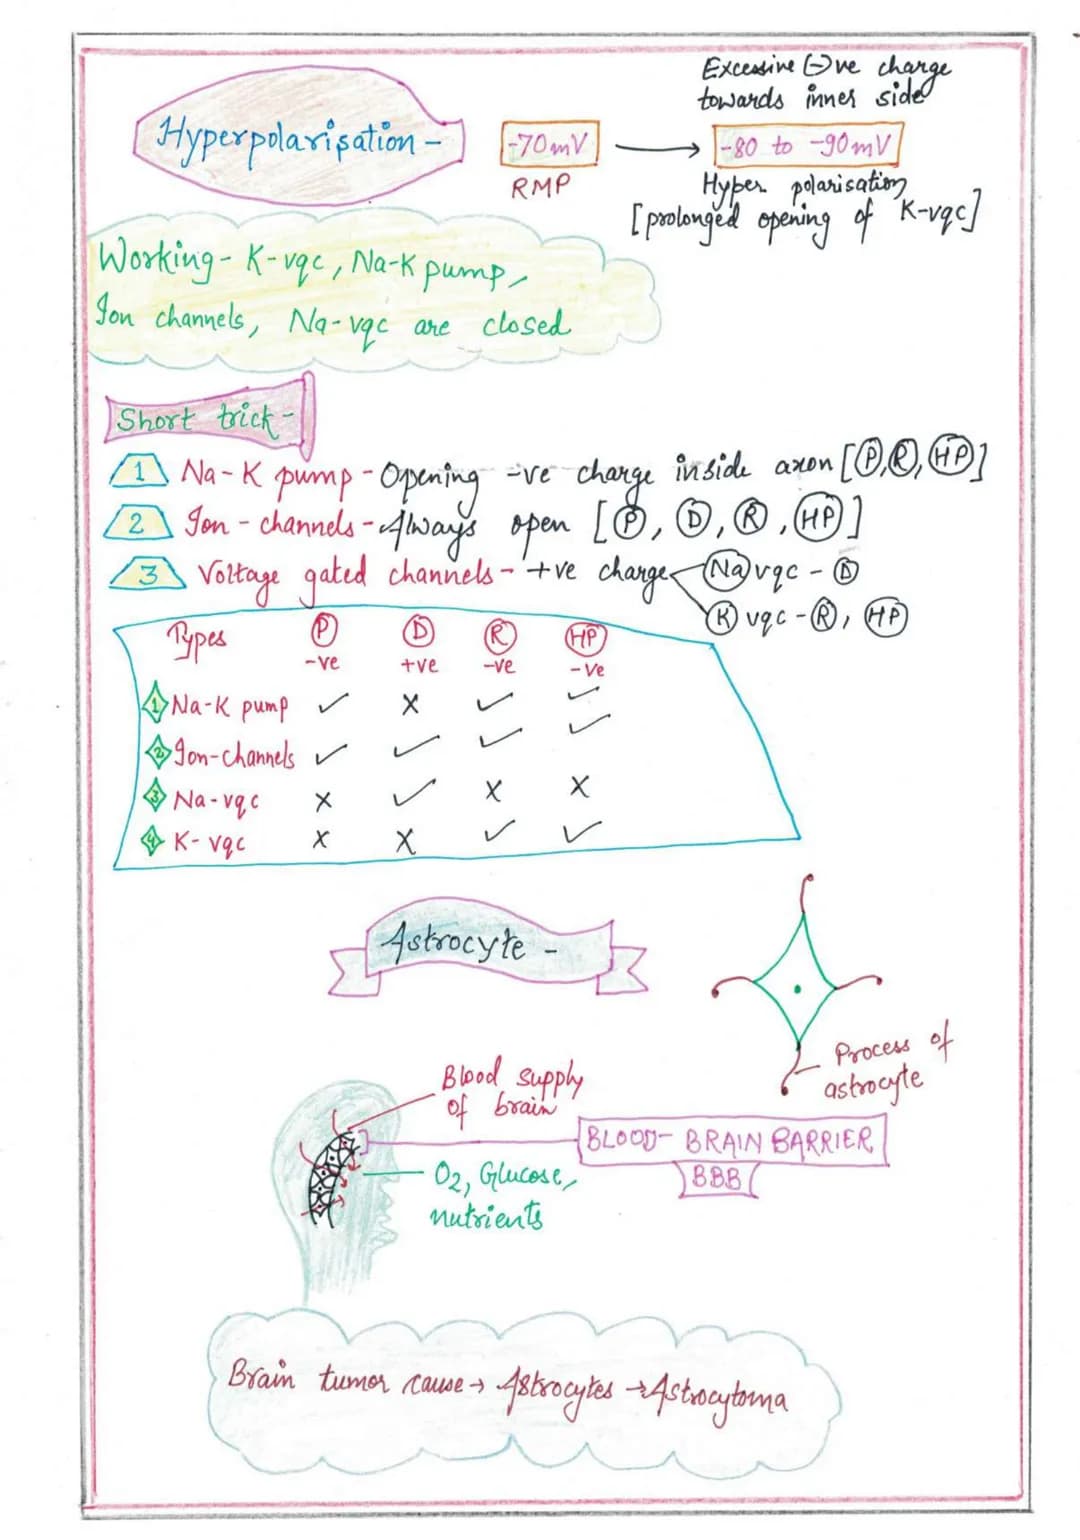 Excessive ⊖ve charge
towards inner side
Hyperpolarisation -
-70mV → -80 to -90mV
RMP
Hyper polarisation
[prolonged opening of K-vgc]
Working - K-vgc, Na-K pump,
Ion channels, Na-vgc are closed
Short trick -
1 Na-K pump - Opening -ve charge inside axon [P, R, HP]
2 Ion - channels - Always open [P, D, R, HP]
3 Voltage gated channels - +ve charge Na vgc - D
K vgc - R, HP
Types P D R HP
-ve +ve -ve -ve
1 Na-K pump ✓ x ✓ ✓
2 Ion-channels ✓ ✓ ✓ ✓
3 Na-vgc x ✓ x x
4 K-vgc x x ✓ ✓
Astrocyte -
Process of
astrocyte
Blood supply
of brain
BLOOD- BRAIN BARRIER
BBB
O2, Glucose,
nutrients
Brain tumor cause → Astrocytes → Astrocytoma